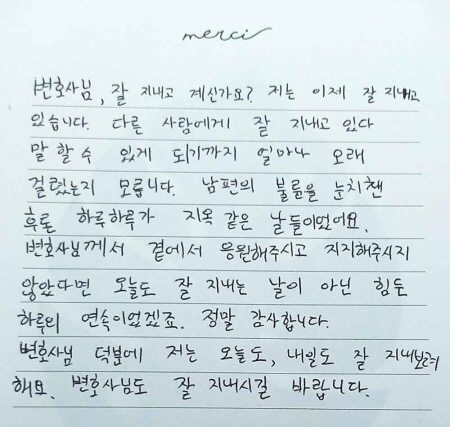 merci
변호사님, 잘 지내고 계신가요? 저는 이제 잘 지내고
있습니다. 다른 사람에게 잘 지내고 있다
말 할 수 있게 되기까지 얼마나 오래
걸렸는지 모릅니다. 남편의 불륜을 눈치챈
후론 하루하루가 지옥 같은 날들이었어요.
변호사님께서 곁에서 응원해주시고 지지해주시지
않았다면 오늘도 잘 지내는 날이 아닌 힘든
하루의 연속이었겠죠. 정말 감사합니다.
변호사님 덕분에 저는 오늘도, 내일도 잘 지내보려
해요. 변호사님도 잘 지내시길 바랍니다.